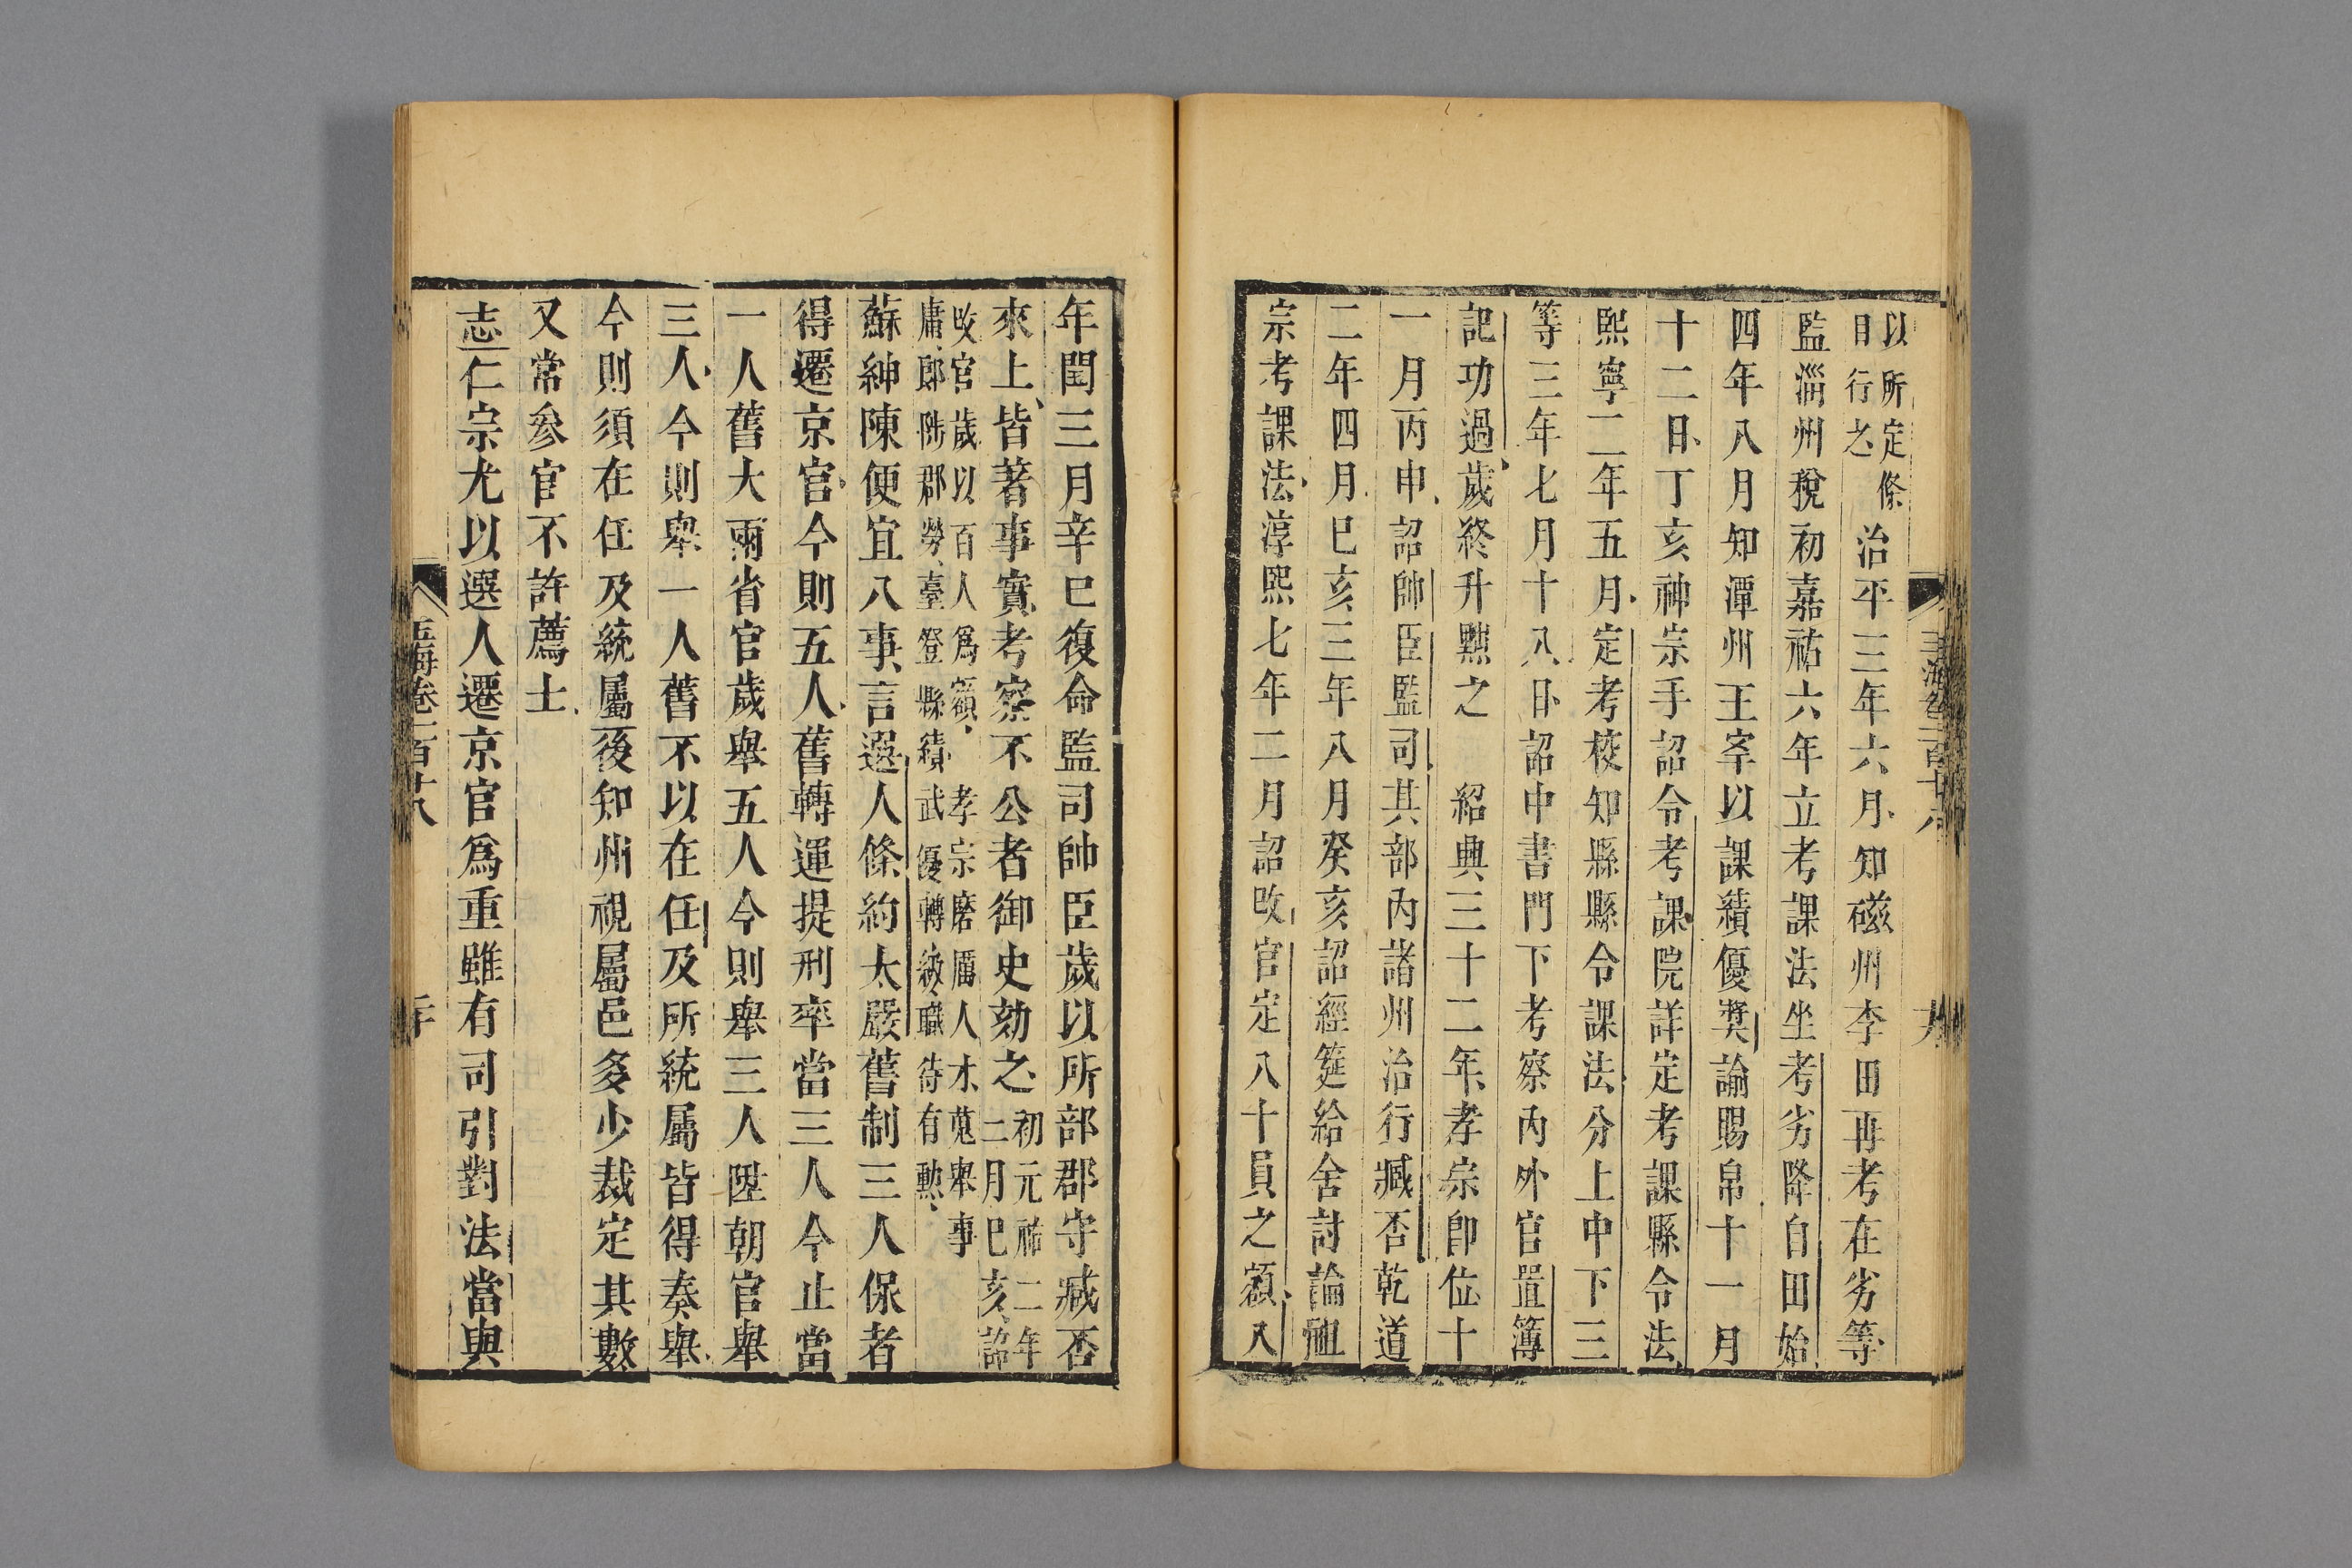 以所定條
目行之
治平三年六月知磁州李田再考在劣等
監淄州稅初嘉祐六年立考課法坐考劣降自田始
四年八月知潭州王罕以課績優獎諭賜帛十一月
十二日丁亥神宗手詔令考課院詳定考課縣令法
熙寧二年五月定考校知縣縣令課法分上中下三
等三年七月十八日詔中書門下考察內外官置簿
記功過歲終升黜之 紹興三十二年孝宗卽位十
一月丙申詔帥臣監司其部內諸州治行臧否乾道
二年四月巳亥三年八月癸亥詔經筵給舍討論祖
宗考課法淳熙七年二月詔改官定八十員之額八
玉海卷一百十八
年閏三月辛巳復命監司帥臣歲以所部郡守臧否
來上皆著事實考察不公者御史劾之
初元祐二年
二月巳亥詔
改官歲以百人爲額 孝宗磨厲人才蒐舉事
庸郎陟郡勞臺登縣績武優轉級職待有勲
蘇紳陳便宜八事言選人條約太嚴舊制三人保者
得遷京官今則五人舊轉運提刑率當三人今止當
一人舊大兩省官歲舉五人今則舉三人陞朝官舉
三人今則舉一人舊不以在任及所統屬皆得奏舉
今則須在任及統屬後知州視屬邑多少裁定其數
又常參官不許薦士
志仁宗尤以選人遷京官爲重雖有司引對法當與
玉海卷一百十八